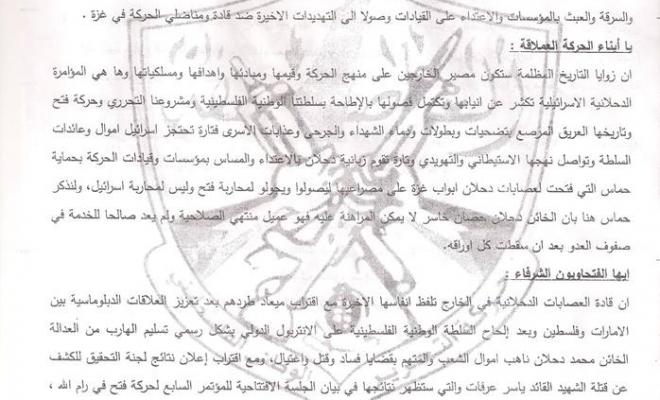 والسرقة والعبث بالمؤسسات والاعتداء على القيادات وصولا الى التهديدات الاخيرة ضد قادة ومناضلي الحركة في غزة .
يا أبناء الحركة العملاقة :
ان زوايا التاريخ المظلمة ستكون مصير الخارجين على منهج الحركة وقيمها ومبادئها واهدافها ومسلكياتها وها هي المؤامرة
الدحلانية الاسرائيلية تكشر عن انيابها وتكتمل فصولها بالإطاحة بسلطتنا الوطنية الفلسطينية ومشروعنا التحرري وحركة فتح
وتاريخها العريق المرصع بتضحيات وبطولات ودماء الشهداء والجرحى وعذابات الأسرى فتارة تحتجز اسرائيل اموال وعائدات
السلطة وتواصل نهجها الاستيطاني والتهويدي وتارة تقوم زبانية دحلان بالاعتداء والمساس بمؤسسات وقيادات الحركة بحماية
حماس التي فتحت لعصابات دحلان ابواب غزة على مصراعيها ليصولوا ويجولو لمحاربة فتح وليس لمحاربة اسرائيل، ولنذكر
حماس هنا بان الخائن دحلان حصان خاسر لا يمكن المراهنة عليه فهو عميل منتهي الصلاحية ولم يعد صالحا للخدمة في
صفوف العدو بعد ان سقطت كل اوراقه.
ايها الفتحاويون الشرفاء :
ان قادة العصابات الدحلانية في الخارج تلفظ انفاسها الاخيرة مع اقتراب ميعاد طردهم بعد تعزيز العلاقات الدبلوماسية بين
الامارات وفلسطين وبعد إلحاح السلطة الوطنية الفلسطينية على الانتربول الدولي بشكل رسمي تسليم الهارب من العدالة
الخائن محمد دحلان ناهب اموال الشعب والمتهم بقضايا فساد وقتل واغتيال، ومع اقتراب إعلان نتائج لجنة التحقيق للكشف
عن قتلة الشهيد القائد ياسر عرفات والتي ستظهر نتائجها في بيان الجلسة الافتتاحية للمؤتمر السابع لحركة فتح في رام الله ،